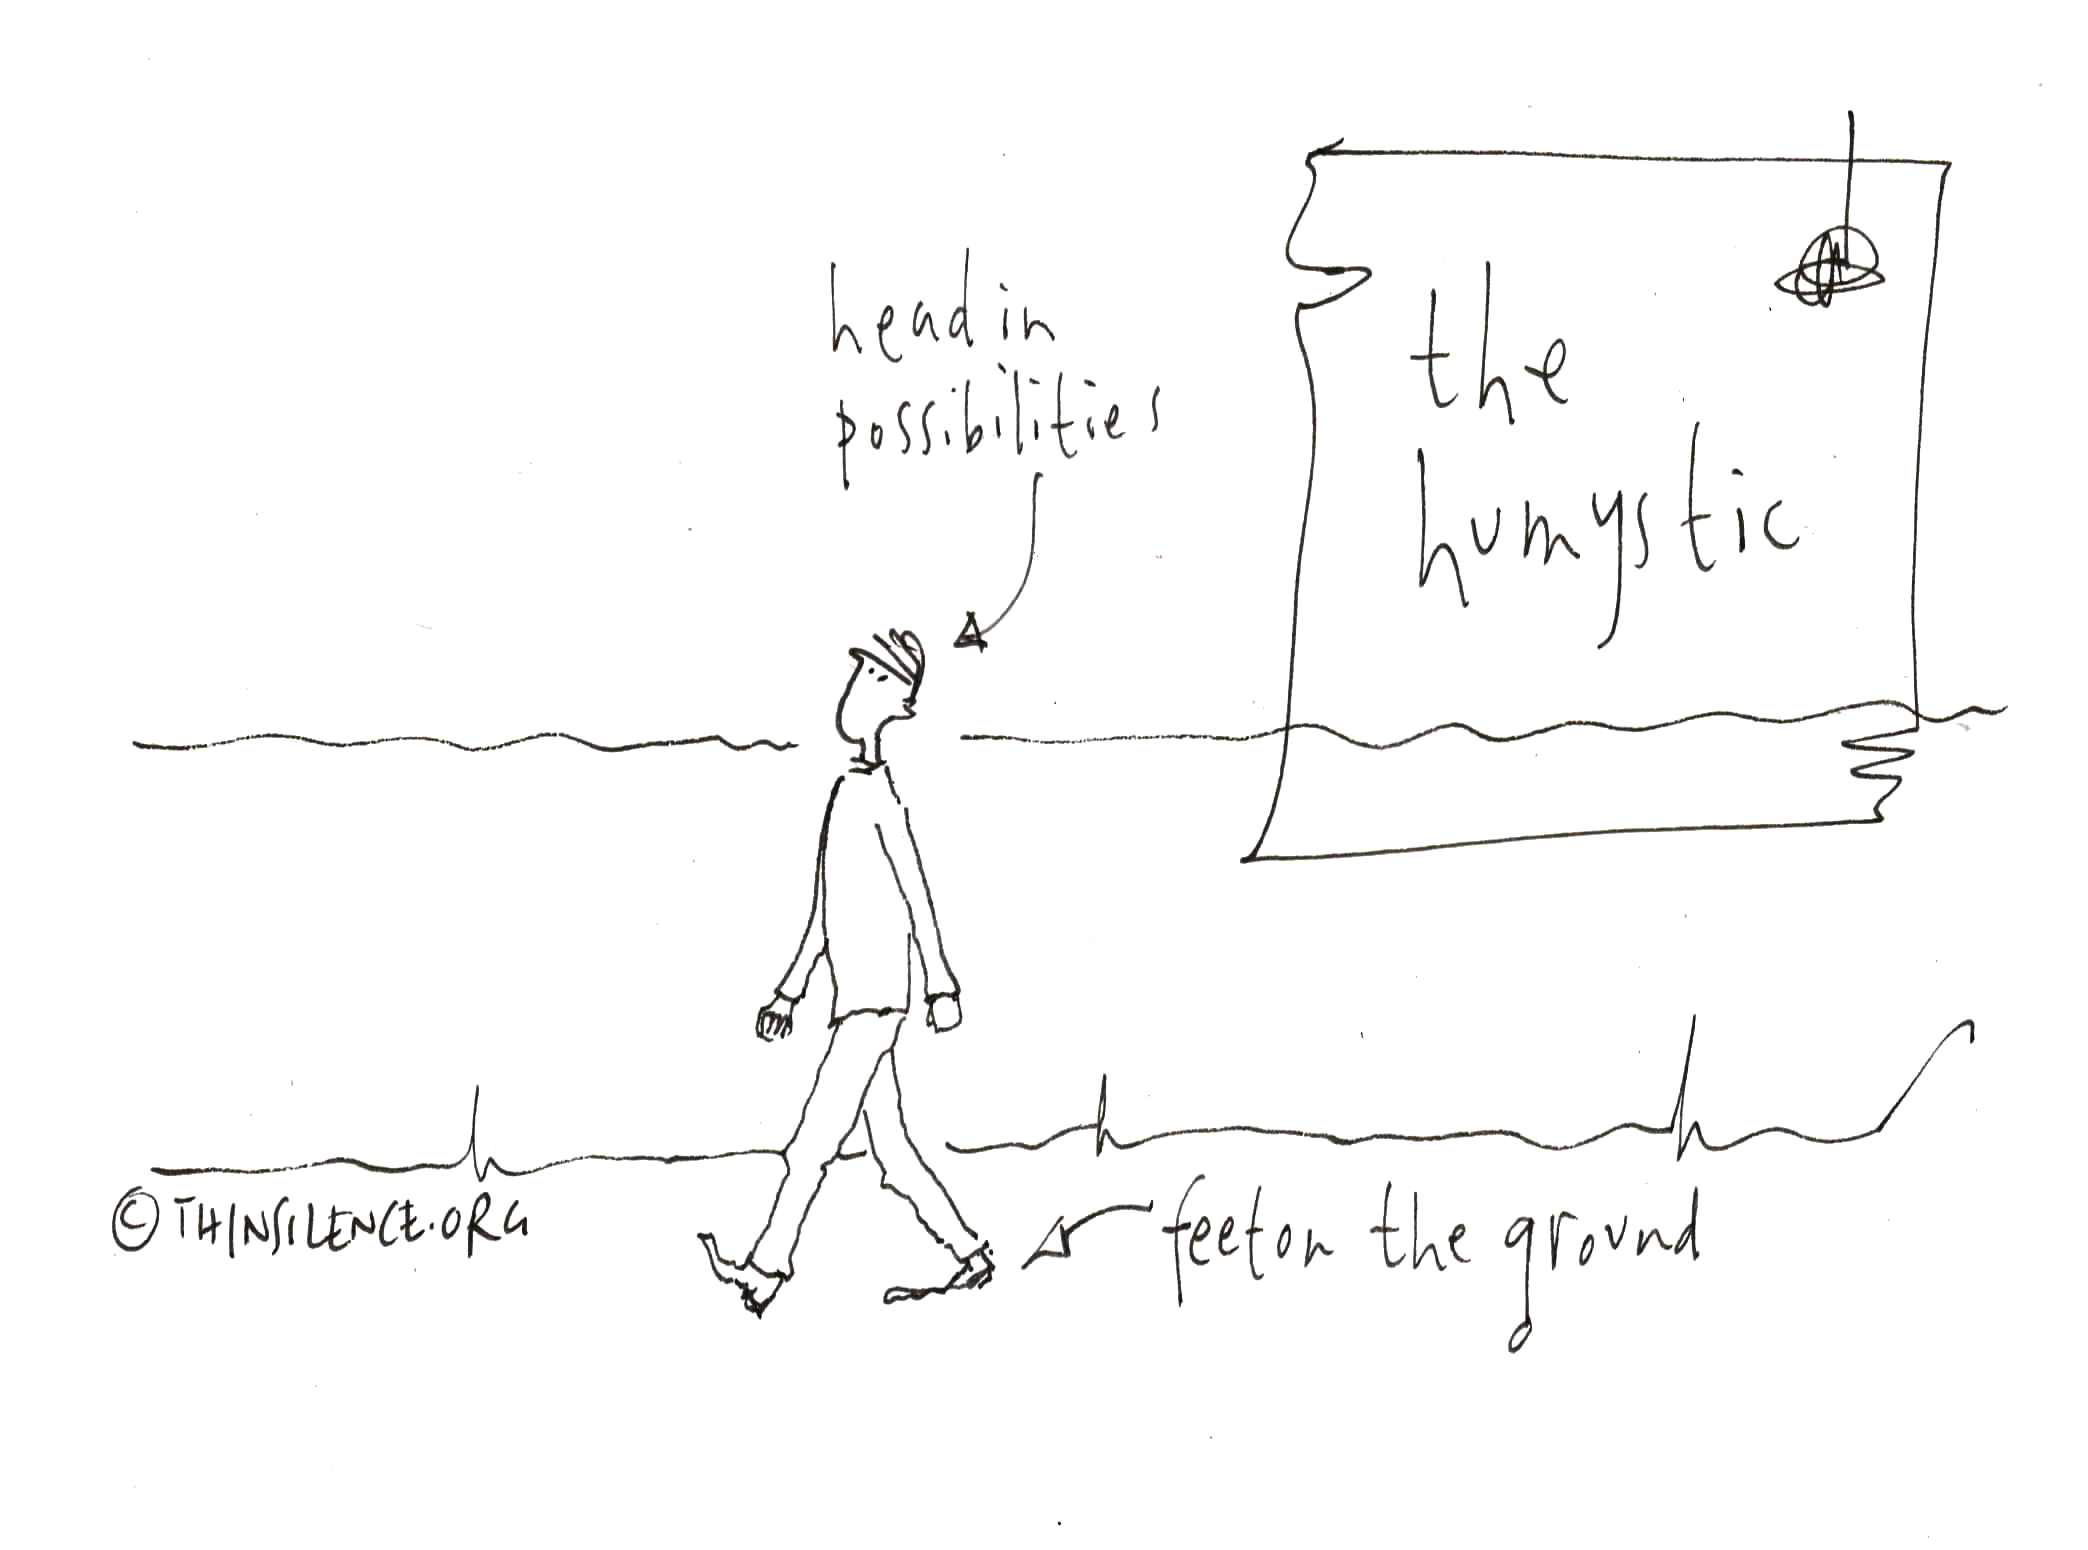 head in
possibilities
the
humystic
© THINSILENCE.ORG
feet on the ground